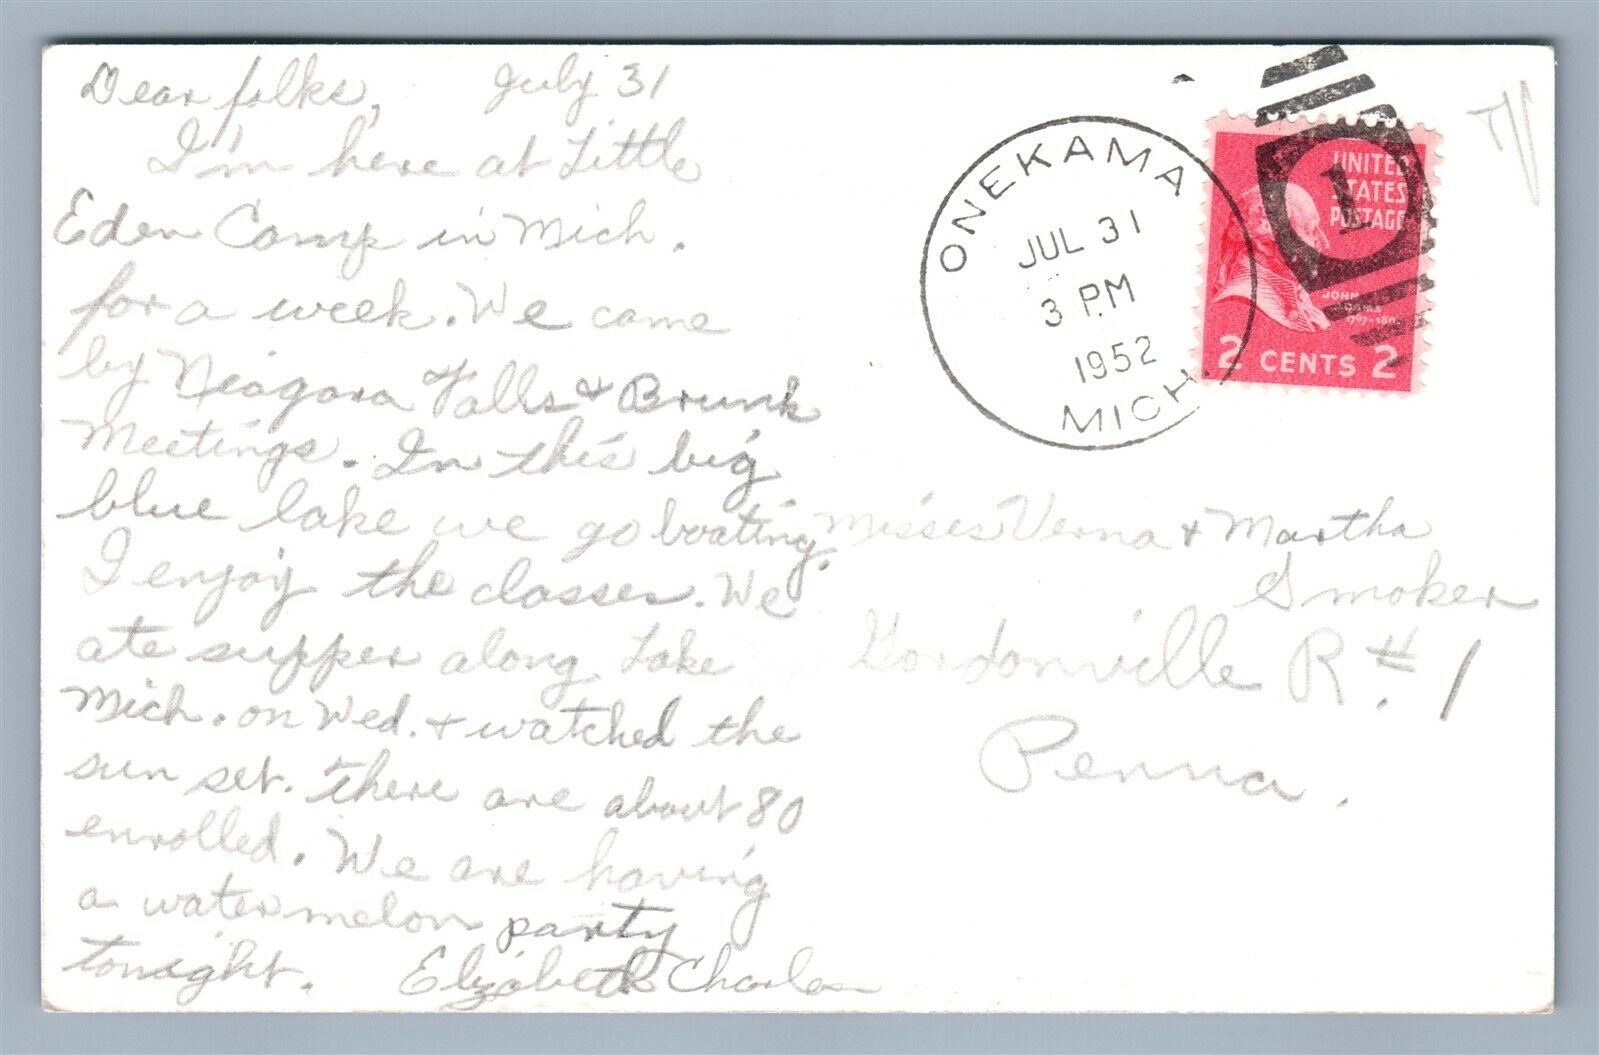 Dear folks, July 31
I'm here at Little
Eden Camp in Mich.
for a week. We came
by Niagara Falls & Brunk
Meetings. In this big
blue lake we go boating.
I enjoy the classes. We
ate supper along Lake
Mich. on Wed. & watched the
sun set. There are about 80
enrolled. We are having
a watermelon party
tonight. Elizabeth Charles
ONEKAMA
JUL 31
3 PM
1952
MICH.
1
UNITED
STATES
POSTAGE
JOHN ADAMS
2 CENTS 2
Misses Verna & Martha
Smoker
Gordonville R. # 1
Penna.